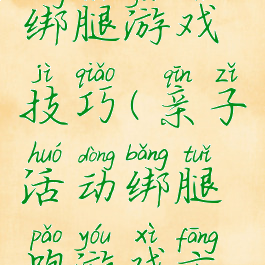 绑腿游戏
jì qiǎo qīn zǐ
技巧(亲子
huó dòng bǎng tuǐ
活动绑腿
pǎo yóu xì fāng
跑游戏方